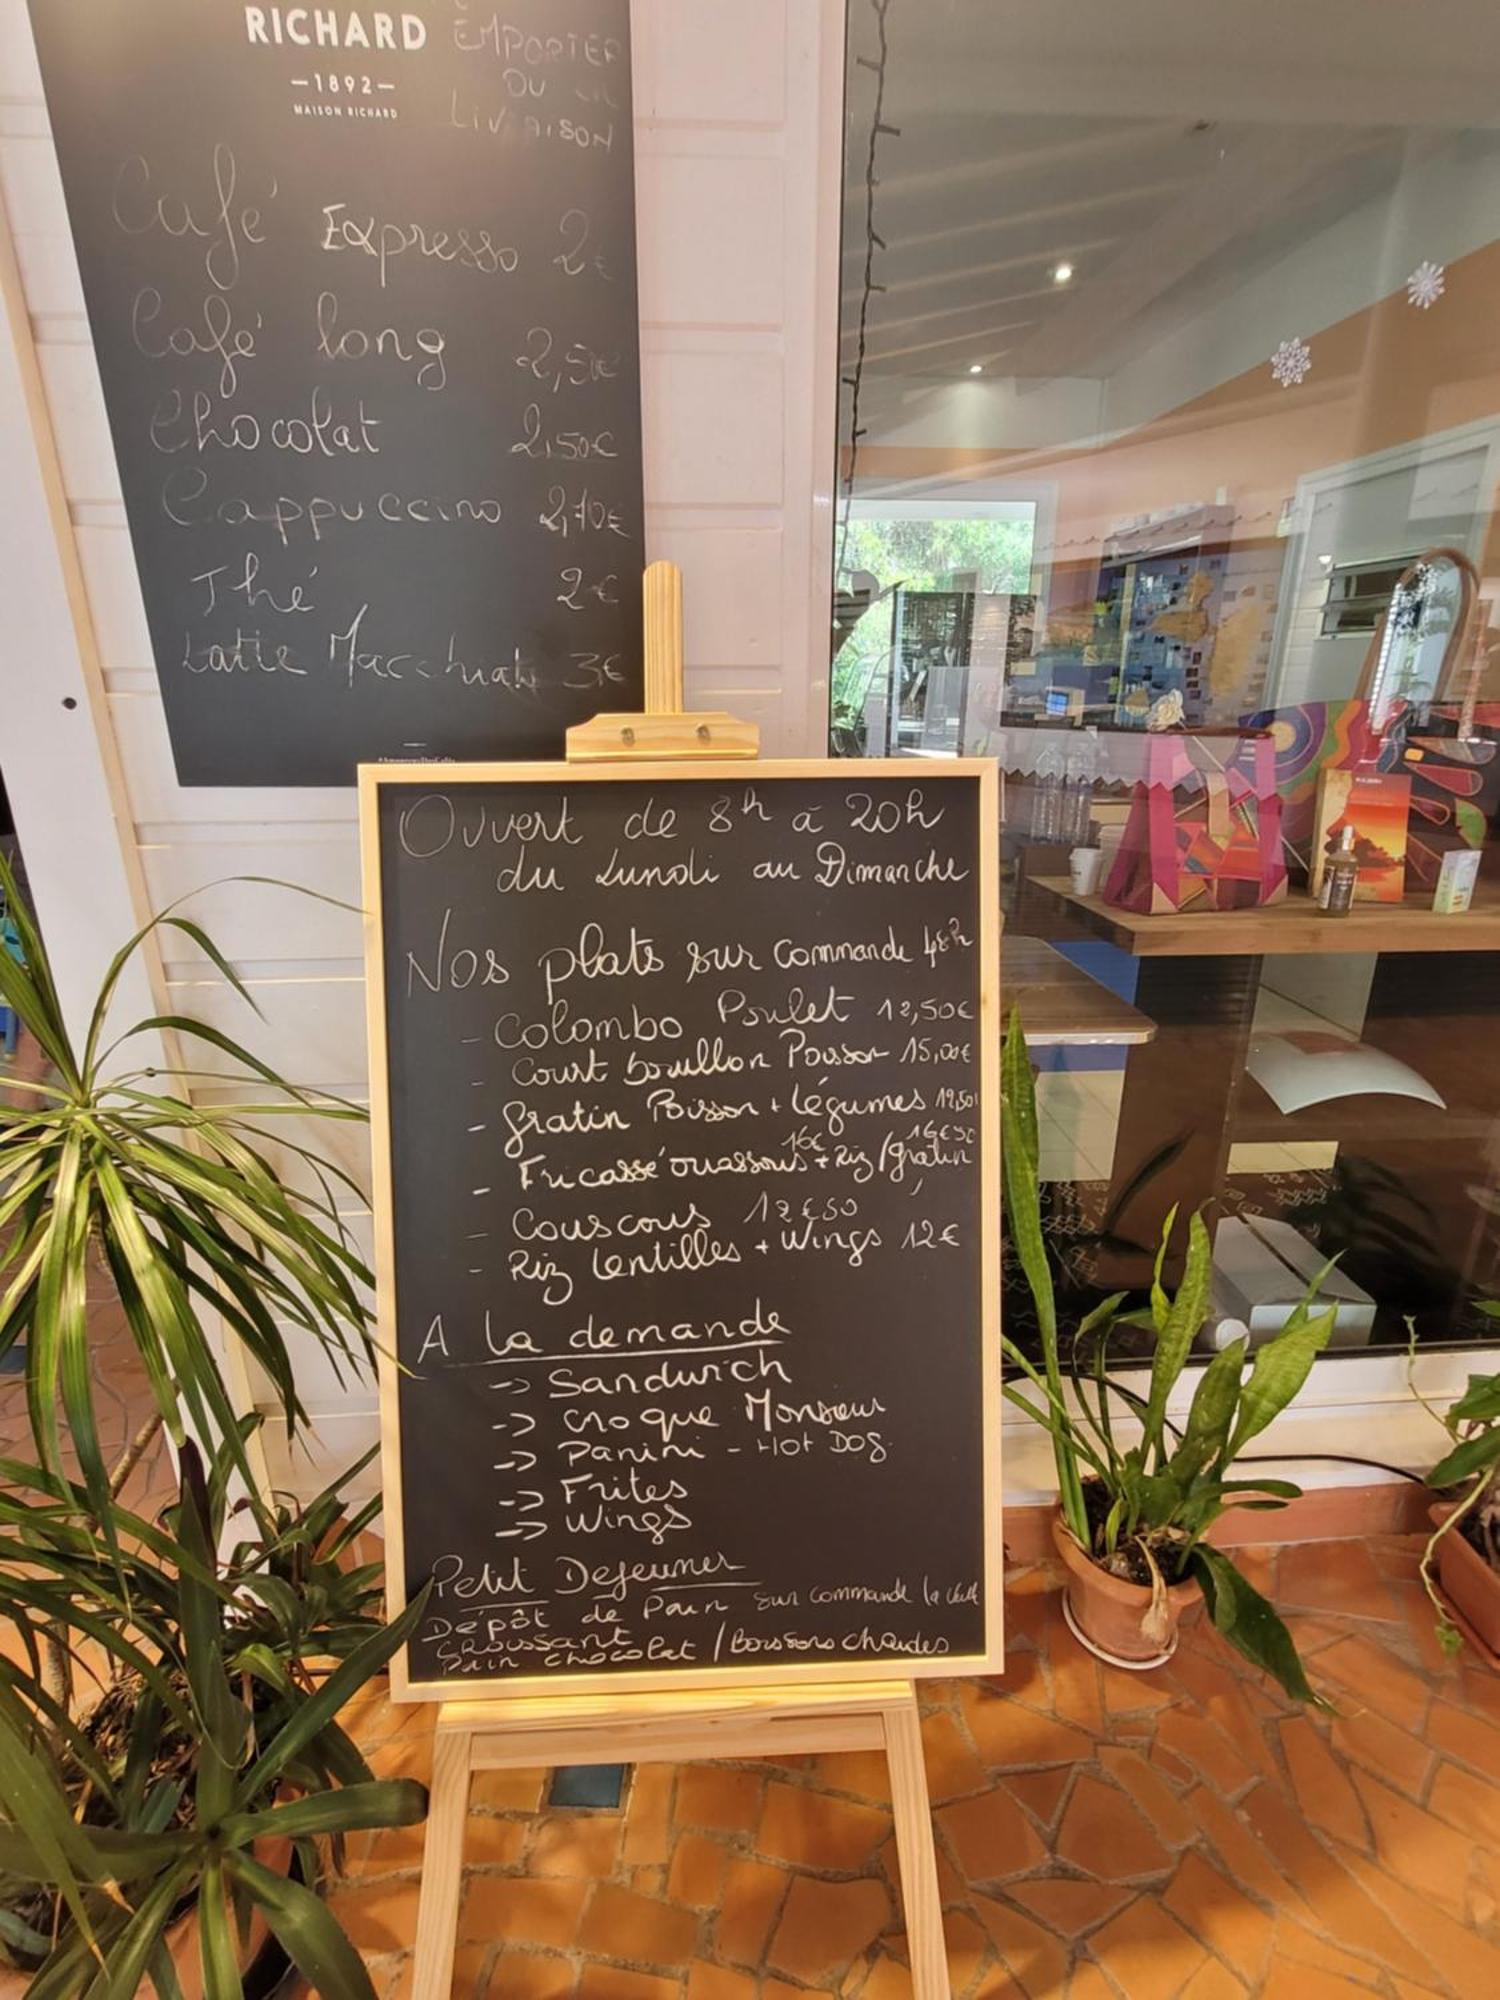 RICHARD
—1892—
MAISON RICHARD
EMPORTER
OU EN
LIVRAISON
Café Expresso 2€
Café long 2,50€
Chocolat 2,50€
Cappuccino 2,70€
Thé 2€
Latte Macchiato 3€
Ouvert de 8h à 20h
du Lundi au Dimanche
Nos plats sur commande 48h
- Colombo Poulet 12,50€
- Court bouillon Poisson 15,00€
- Gratin Poisson + Légumes 12,50
16€ 16€50
- Fricassé ouassous + Riz / gratin
- Couscous 12€50
- Riz Lentilles + Wings 12€
A la demande
-> Sandwich
-> Croque Monsieur
-> Panini - Hot Dog
-> Frites
-> Wings
Petit Dejeuner
Dépôt de Pain sur commande la veille
Croissant
Pain chocolat / Boissons chaudes